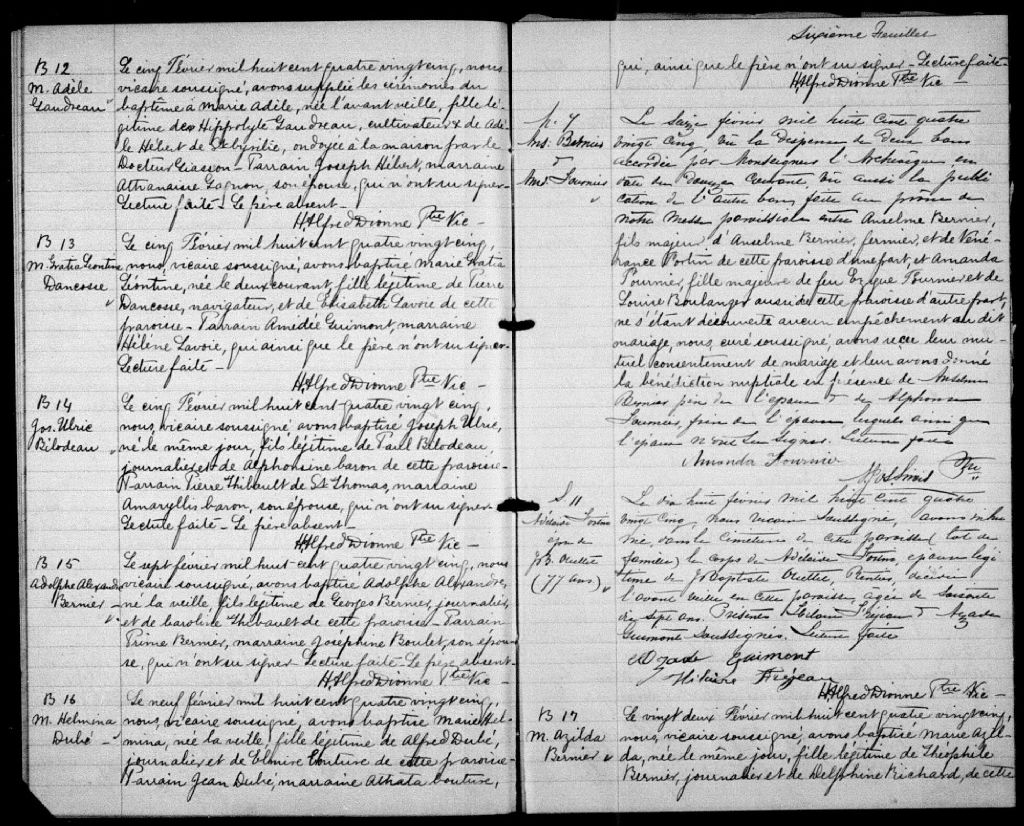 B 12
M. Adèle
Gaudreau
Le cinq Février mil huit cent quatre vingt cinq, nous
vicaire soussigné, avons supplié les cérémonies du
baptème à Marie Adèle, née l'avant veille, fille lé-
gitime de Hippolyte Gaudreau, cultivateur & de Adè-
le Hébert de ondoyée à la maison par le
Docteur Giasson - Parrain Joseph Hébert, marraine
Athanaise Gagnon, son épouse, qui n'ont su signer -
Lecture faite - Le père absent -
H. Alfred Dionne Ptre Vic -
B 13
M. Gratia Léontine
Dancosse
Le cinq Février mil huit cent quatre vingt cinq,
nous, vicaire soussigné, avons baptisé Marie Gratia
Léontine, née le deux courant, fille légitime de Pierre
Dancosse, navigateur, et de Elisabeth Lavoie de cette
paroisse - Parrain Amidée Guimont, marraine
Hélène Lavoie, qui ainsi que le père n'ont su signer -
Lecture faite -
H. Alfred Dionne Ptre Vic -
B 14
Jos. Ulric
Bilodeau
Le cinq Février mil huit cent quatre vingt cinq,
nous, vicaire soussigné avons baptisé Joseph Ulric,
né le même jour, fils légitime de Paul Bilodeau,
journalier et de Alphonsine Caron de cette paroisse -
Parrain Pierre Thibault de St Thomas, marraine
Amaryllis Caron, son épouse, qui n'ont su signer -
Lecture faite - Le père absent -
H. Alfred Dionne Ptre Vic -
B 15
Adolphe Alexandre
Bernier -
Le sept février mil huit cent quatre vingt cinq, nous
vicaire soussigné, avons baptisé Adolphe Alexandre,
né la veille, fils légitime de Georges Bernier, journalier,
et de Caroline Thibault de cette paroisse - Parrain
Prime Bernier, marraine Josephine Boulet, son épou-
se, qui n'ont su signer Lecture faite - Le père absent -
H. Alfred Dionne Ptre Vic -
B 16
M. Helmina
Dubé -
Le neuf février mil huit cent quatre vingt cinq,
nous, vicaire soussigné, avons baptisé Marie Hel-
mina, née la veille, fille légitime de Alfred Dubé,
journalier et de Elmire Couture de cette paroisse -
Parrain Jean Dubé, marraine Couture,
Sixième Feuillet
qui, ainsi que le père n'ont su signer - Lecture faite -
H. Alfred Dionne Ptre Vic -
M. 7
Ans. Bernier
&
Amd. Fournier
Le Seize février mil huit cent quatre
vingt cinq, vu la dispense de deux bans
accordée par Monseigneur l'Archevêque en
date du Douze courant, vu aussi la publi
cation de l'autre ban, faite au prône de
notre Messe paroissiale entre Anselme Bernier,
fils majeur d'Anselme Bernier, fermier, et de Véné-
rance Fortin de cette paroisse d'une part et Amanda
Fournier, fille majeure de feu Fournier et de
Louise Boulanger aussi de cette paroisse d'autre part,
ne s'étant découverte aucun empêchement au dit
mariage, nous, curé soussigné, avons reçu leur mu-
tuel consentement de mariage et leur avons donné
la bénédiction nuptiale en présence de Anselme
Bernier père de l'époux & de Alphonse
Fournier, frère de l'épouse lesquels ainsi que
l'époux n'ont su signer. Lecture faite
Amanda Fournier
Ptre
S 11
Adélaide Fortin
épse de
J. B. Ouellet
(77 ans)
Le dix huit février mil huit cent quatre
vingt cinq, nous vicaire soussigné, avons inhu
mé, dans le cimetière de cette paroisse (lot de
famille) le corps de Adélaide Fortin, épouse légi
time de J Baptiste Ouellet, Rentier, décédée
l'avant veille en cette paroisse, agée de soixante
dix sept ans. Présents & Azade
Guimont soussignés. Lecture faite
Azade Guimont
H. Alfred Dionne Ptre Vic -
B 17
M. Azilda
Bernier
Le vingt deux Février mil huit cent quatre vingt cinq,
nous, vicaire soussigné, avons baptisé Marie Azil-
da, née le même jour, fille légitime de Théophile
Bernier, journalier et de Delphine Richard, de cette